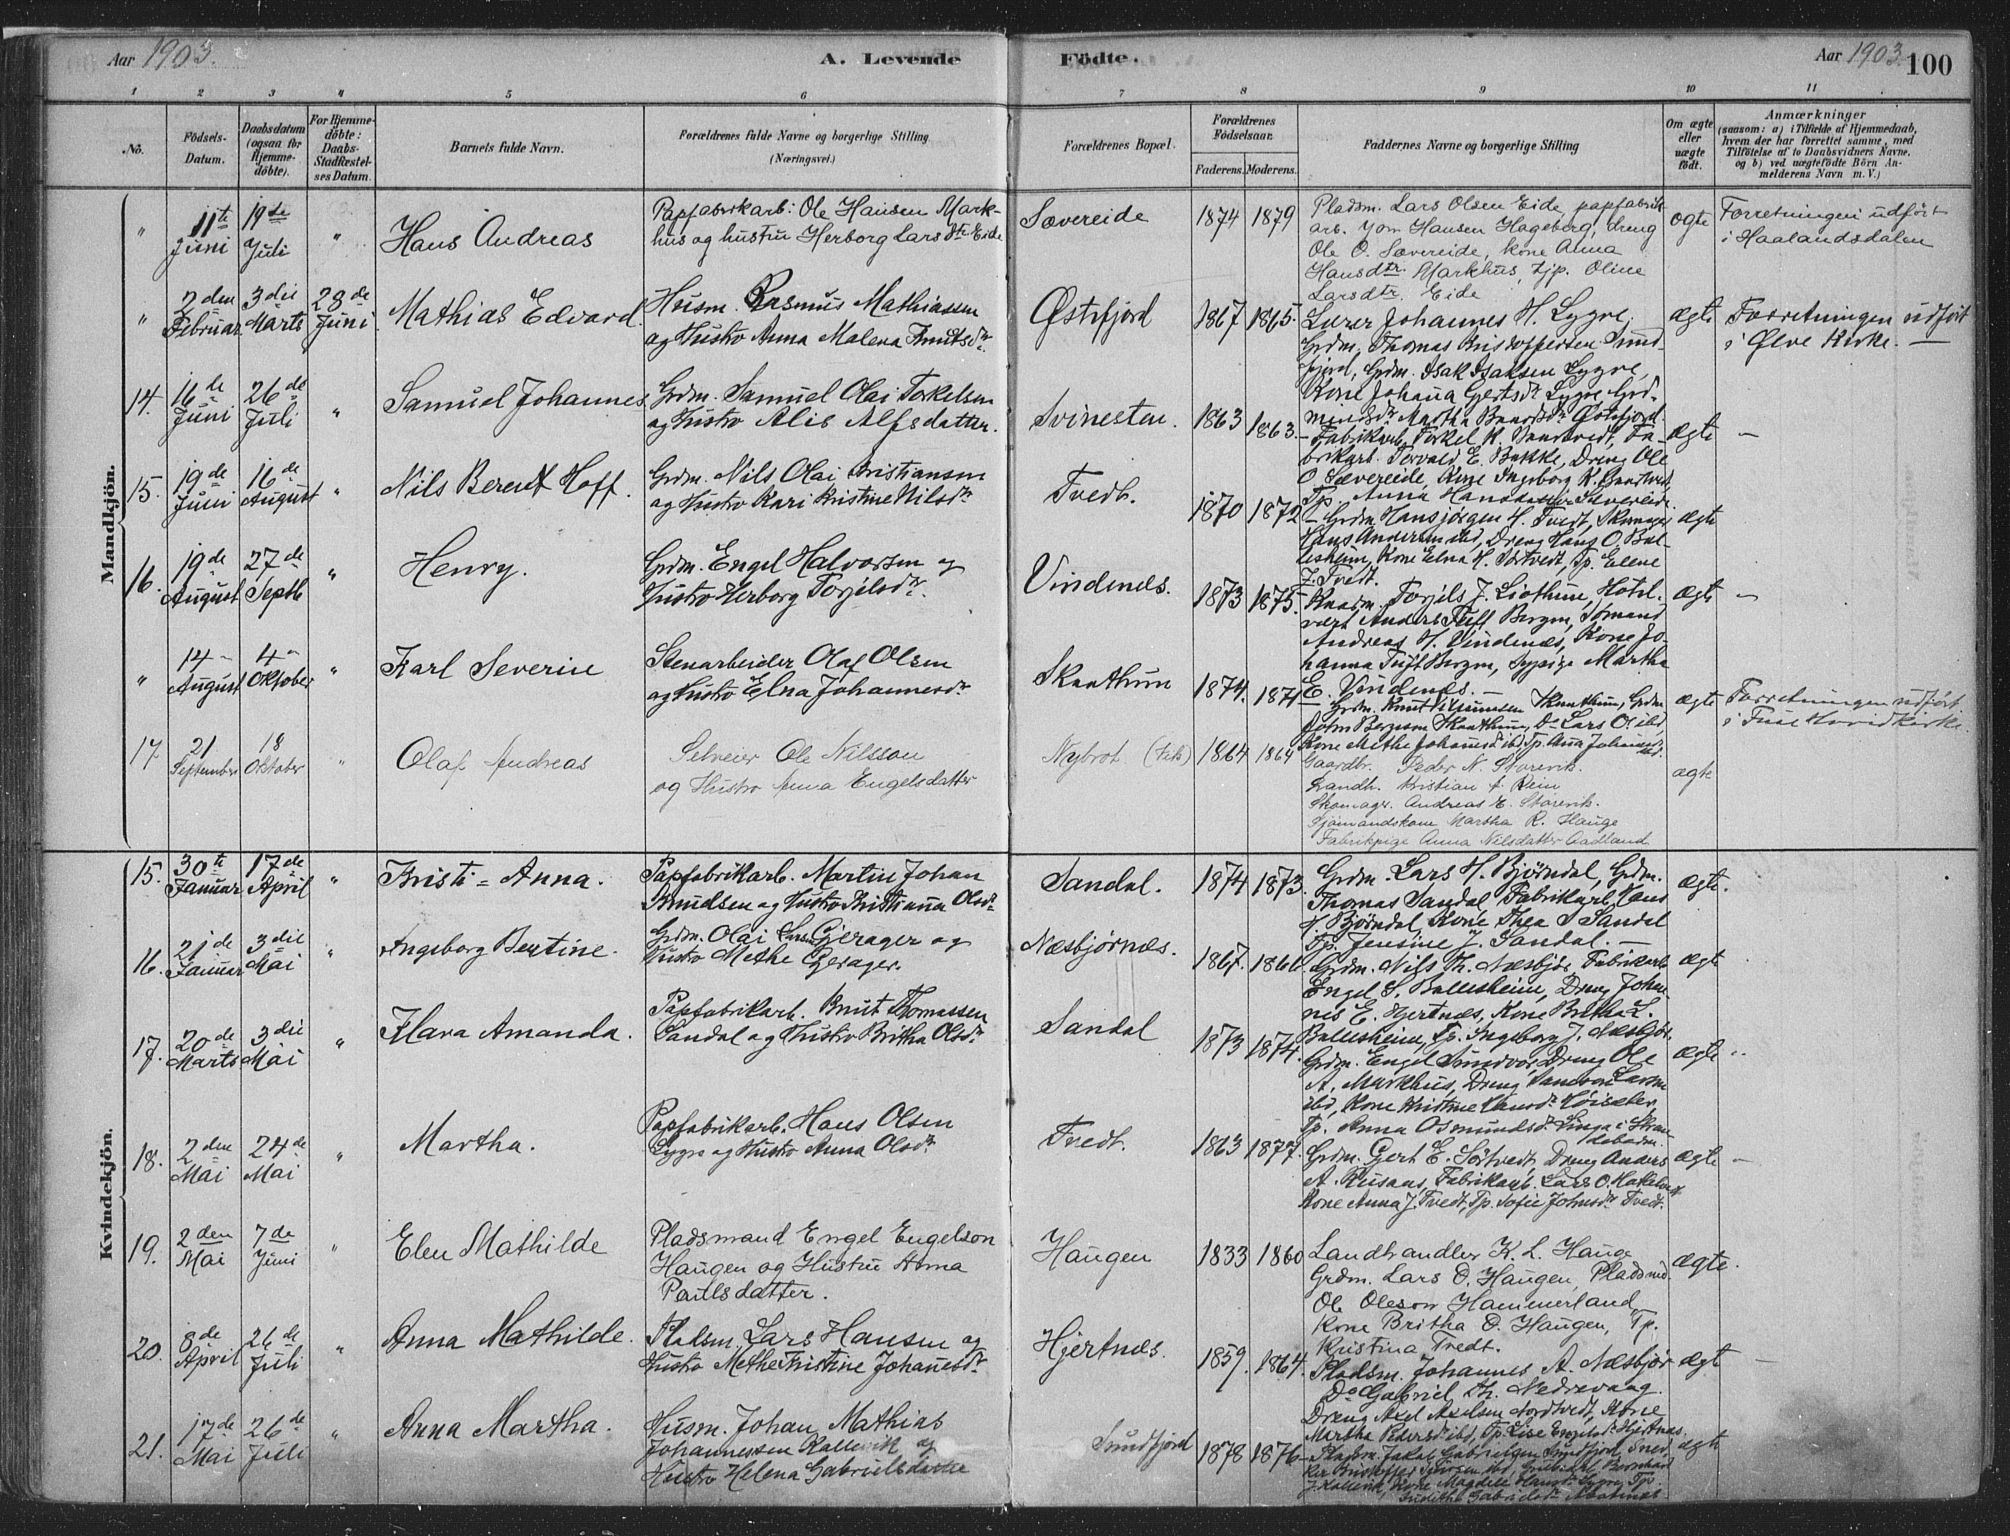 Aar 1903. A. Levende Födte. Aar 1903. 100
1 2 3 4 5 6 7 8 9 10 11
No. Födsels-Datum. Daabsdatum (ogsaa for Hjemmedöbte). For Hjemmedöbte: Daabs-Stadfæstelses Datum. Barnets fulde Navn. Forældrenes fulde Navne og borgerlige Stilling (Næringsvei.) Forældrenes Bopæl. Forældrenes Födselsaar. Faderens. Moderens. Faddernes Navne og borgerlige Stilling Om ægte eller uægte födt. Anmærkninger (saasom: a) i Tilfælde af Hjemmedaab, hvem der har forrettet samme, med Tilföielse af to Daabsvidners Navne, og b) ved uægtefödte Börn Anmelderens Navn m. V.)
Mandkjön.
" 11te Juni 19de Juli " Hans Andreas
Papfabrikarb: Ole Hansen Mark-
hus og hustru Herborg Larsdtr Eide
Sævereide 1874 1879
Pladsm. Lars Olsen Eide, papfabrik-
arb. Jom Hansen Hageberg, dreng
Ole O. Sævereide, kone Anna
Hansdtr. Markhus, tjp. Oline
Larsdtr. Eide
ægte Forretningen udført
i Haalandsdalen
" 2den Februar 3die Marts 28de Juni Mathias Edvard.
Husm. Rasmus Mathiassen
og Hustro Anna Malena Knutsdtr.
Østefjord 1867 1865.
Lærer Johannes H. Lygre,
Grdm. Thomas Kristoffersen Sund-
fjord, Grdm. Isak Isaksen Lygre,
Kone Johana Gertsdtr Lygre
Martha Østefjord.
ægte Forretningen udført
i Ølve Kirke. —
14. 16de Juni 26de Juli " Samuel Johannes
Grdm. Samuel Olai Torkelsen
og Hustro Alis Alfsdatter.
Svinesten. 1863 1863.
Fabrikarb. Torkel K.
Torvald E. Bakke, Dreng Ole
O. Sævereide, Kone Ingeborg K.
Tp. Anna Sævereide
ægte —
15. 19de Juni 16de August " Nils Berent Hoff.
Grdm. Nils Olai Kristiansen
og Hustro Kari Kristine Nilsdtr
Tvedt. 1870 1872
Grdm. Hansjørgen H. Tvedt,
Dreng Hans O. Bal-
lesheim, Kone Elna H. Tp. Elene
J. Tvedt.
ægte
16. 19de August 27de Septb " Henry.
Grdm. Engel Halvorsen og
Hustro Herborg Torjilsdtr.
Vindenes. 1873 1875.
Torjils J. Hotel-
vært Anders Tuft Bergen, Sømand
Andreas H. Vindenes, Kone Jo-
hanna Tuft Bergen, Sypige Martha
E. Vindenes. —
ægte —
" 14 August 4 Oktober " Karl Severin
Stenarbeider Olaf Olsen
og Hustro Elna Johannesdtr
Skaathun 1874. 1871
Grdm. Knut Skaathun, Grdm
Skaathun, Do Lars O. ibd,
Kone Methe Tp. Anna
ægte Forretningen udført
i Fuse Hovidkirke.
17 21 September 18 Oktober " Olaf Andreas
Selveier Ole Nilsson
og Hustro Anna Engelsdatter
Nybrot 1864 1864
Gaardbr. Peder N. Storevik.
Landh. Kristian Rein
Skomager. Andreas E. Storevik.
Sjømandskone Martha R. Hauge
Fabrikpige Anna Nilsdatter Aadland
ægte
Kvindekjön.
15. 30te Januar 17de April " Kristi = Anna.
Papfabrikarb. Martin Johan
Knudsen og Hustro Kristianna Olsdtr
Sandal. 1874 1873.
Grdm. Lars H. Bjørndal, Grdm.
Thomas Sandal Fabrikarb. Hans
H. Bjørndal, Kone Thea S Sandal
Tp. Jensine J. Sandal. —
ægte.
16. 21de Januar 3die Mai " Ingeborg Bertine.
Grdm. Olai Gjerager og
Hustro Methe Gjerager.
Næsbjørnæs. 1867. 1866
Grdm. Nils Th. Næsbjør Fabrikarb
Engel S. Ballesheim, Dreng Johan-
nes E. Hjertnæs, Kone Britha L.
Ballesheim, Tp. Ingeborg J. Næsbjør.
ægte
17. 20de Marts 3die Mai " Klara Amanda.
Papfabrikarb. Knut Thomassen
Sandal og Hustro Britha Olsdtr
Sandal 1873 1874.
Grdm. Engel Sundvor, Dreng Ole
A. Markhus, Dreng Larsen
ibd, Kone Kristine
Tp. Anna Osmundsdtr
ægte
18. 2den Mai 24de Mai " Martha.
Papfabrikarb. Hans Olsen
Lygre og Hustro Anna Olsdtr
Tvedt. 1863 1877.
Grdm. Gert E. Sørtvedt, Dreng Anders
A. Husaas, Fabrikarb. Lars O.
Kone Anna J. Tvedt, Tp. Sofie Johnsdtr Tvedt.
ægte —
19. 2den Mai 7de Juni " Elen Mathilde
Pladsmand Engel Engelson
Haugen og Hustru Anna
Paulsdatter.
Haugen 1833 1860
Landhandler K. L. Hauge
Grdm. Lars O. Haugen, Pladsmd.
Ole Oleson Hammerland
Kone Britha O. Haugen, Tp.
Kristina Tvedt.
ægte.
20. 8de April 26de Juli " Anna Mathilde.
Pladsm. Lars Hansen og
Hustro Methe Kristine Johanesdtr
Hjertnæs. 1859. 1864.
Pladsm. Johannes A. Næsbjør
Do Gabriel Th. Nedrevaag.
Dreng Axel Axelsen Nordtvedt, Kone
Martha Pedersdtr ibd, Tp. Lise Engelsdtr Hjertnæs.
ægte —
21. 17de Mai 26de Juli " Anna Martha.
Husm. Johan Mathias
Johannessen Kallevik og
Hustro Helena Gabrielsdatter
Sundfjord 1878 1876
Pladsm. Jakob Gabrielsen Sundfjord,
Bernhard
J. Kallevik, Kone Magdele Lygre, Tp.
ægte